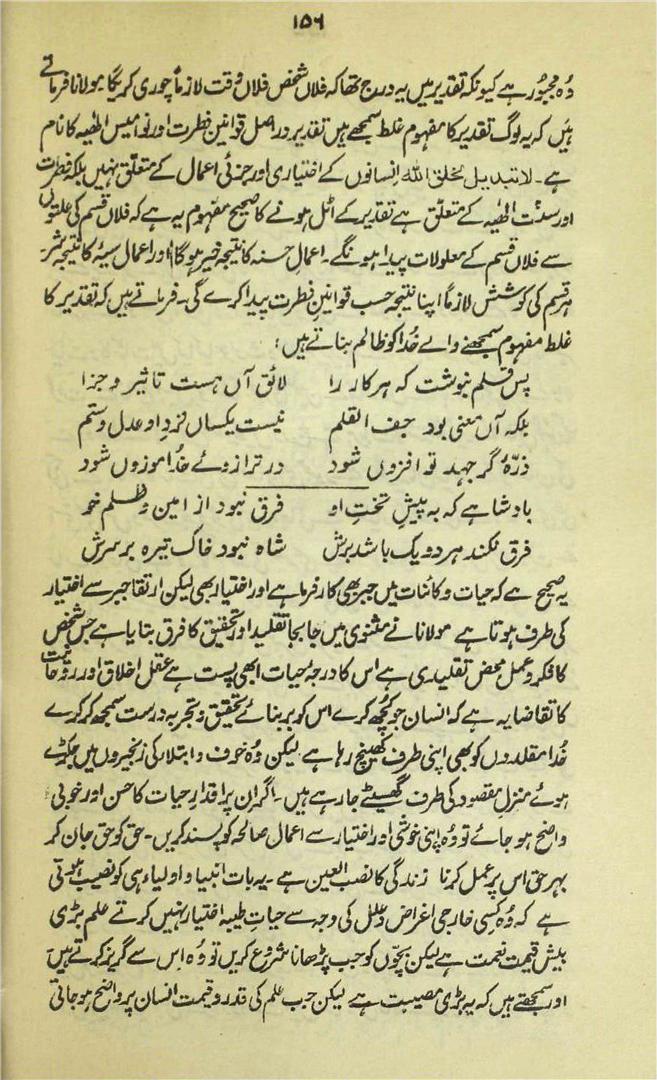 ۱۵۶
وُہ مجبُور ہے کیونکہ تقدیر میں یہ درج تھا کہ فلاں شخص فلاں وقت لازماً چوری کریگا۔ مولانا فرماتے
ہیں کہ یہ لوگ تقدیر کا مفہوم غلط سمجھے ہیں تقدیر در اصل قوانین فطرت اور نوامیس الٰہیہ کا نام
ہے۔ لا تبدیل لخلق اللہ انسانوں کے اختیاری اور جزئی اعمال کے متعلق نہیں بلکہ فطرت
اور سنّت الٰہیہ کے متعلق ہے تقدیر کے اٹل ہونے کا صحیح مفہوم یہ ہے کہ فلاں قسم کی علتوں
سے فلاں قسم کے معلولات پیدا ہونگے۔ اعمالِ حسنہ کا نتیجہ خیر ہوگا اور اعمال سیۂ کا نتیجہ شر۔
ہر قسم کی کوشش لازماً اپنا نتیجہ حسب قوانینِ فطرت پیدا کرے گی۔ فرماتے ہیں کہ تقدیر کا
غلط مفہوم سمجھنے والے خُدا کو ظالم بناتے ہیں :
پس قلم بنوشت کہ ہر کار را لائق آں ہست تاثیر و جزا
بلکہ آں معنی بود جف القلم نیست یکساں نزدِ او عدل و ستم
ذرّۂ گر جہد تو افزوں شود در ترازوئے خُدا موزوں شود
بادشاہے کہ بہ پیشِ تختِ او فرق نبود از امین و ظلم خو
فرق نکند ہر دو یک باشد برش شاہ نبود خاک تیرہ بر سرش
یہ صحیح ہے کہ حیات و کائنات میں جبر بھی کار فرما ہے اور اختیار بھی لیکن ارتقا جبر سے اختیار
کی طرف ہوتا ہے مولانا نے مثنوی میں جابجا تقلید اور تحقیق کا فرق بتایا ہے جس شخص
کا فکر و عمل محض تقلیدی ہے اس کا درجۂ حیات ابھی پست ہے عقل اخلاق اور روحانیت
کا تقاضا یہ ہے کہ انسان جو کچھ کرے اس کو بر بنائے تحقیق و تجربہ درست سمجھ کر کرے
خُدا مقلدوں کو بھی اپنی طرف کھینچ رہا ہے لیکن وُہ خوف و ابتلا کی زنجیروں میں جکڑے
ہوئے منزلِ مقصود کی طرف گھسیٹے جا رہے ہیں۔ اگر ان پر اقدارِ حیات کا حسن اور خوبی
واضح ہو جائے تو وُہ اپنی خوشی اور اختیار سے اعمال صالحہ کو پسند کریں۔ حق کو حق جان کر
بہر حق اس پر عمل کرنا زندگی کا نصب العین ہے۔ یہ بات انبیا و اولیاء ہی کو نصیب ہوتی
ہے کہ وُہ کسی خارجی اغراض و علل کی وجہ سے حیاتِ طیبہ اختیار نہیں کرتے علم بڑی
بیش قیمت نعمت ہے لیکن بچّوں کو جب پڑھانا شروع کریں تو وُہ اس سے گریز کرتے ہیں
اور سمجھتے ہیں کہ یہ بڑی مصیبت ہے لیکن جب علم کی قدر و قیمت انسان پر واضح ہو جاتی